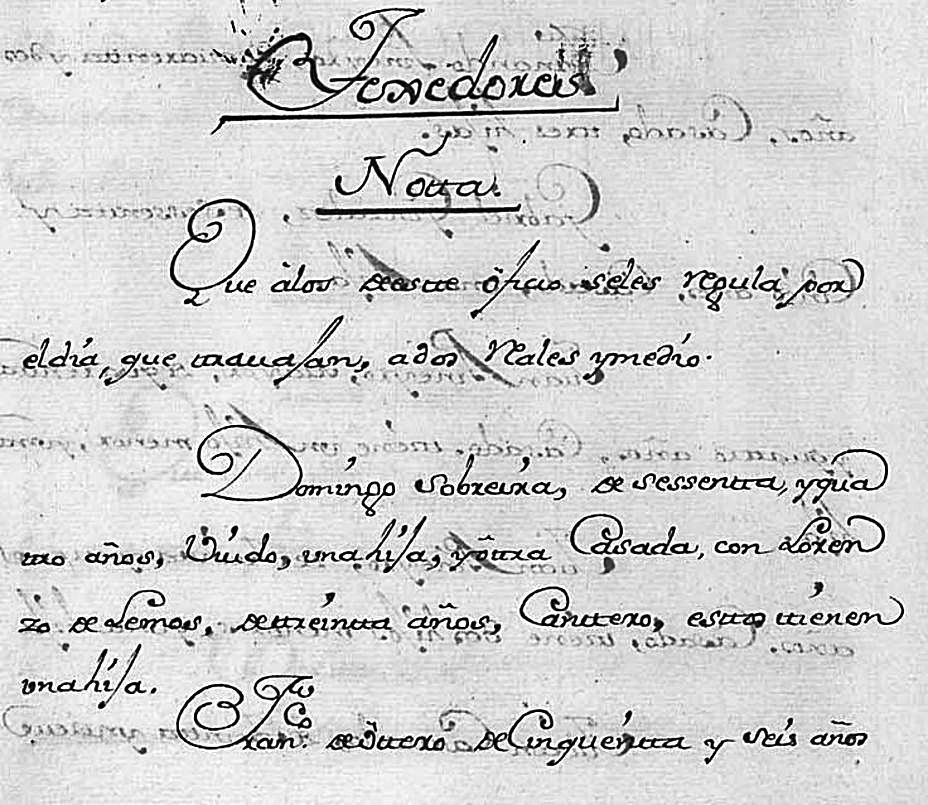 Texedores
Notta.
Que àlos deeste ôficio seles regula por
eldía, que travajan, ados Reales ymedio.
Domingo Sobreira, de Sessentta, yqua
tro años, Viúdo, unahija, yôttra Casada, con Loren
zo de Lemos, dettreintta años, Canttero, estto ttienen
unahija.
Franco. deôttero deCinquentta y seis años